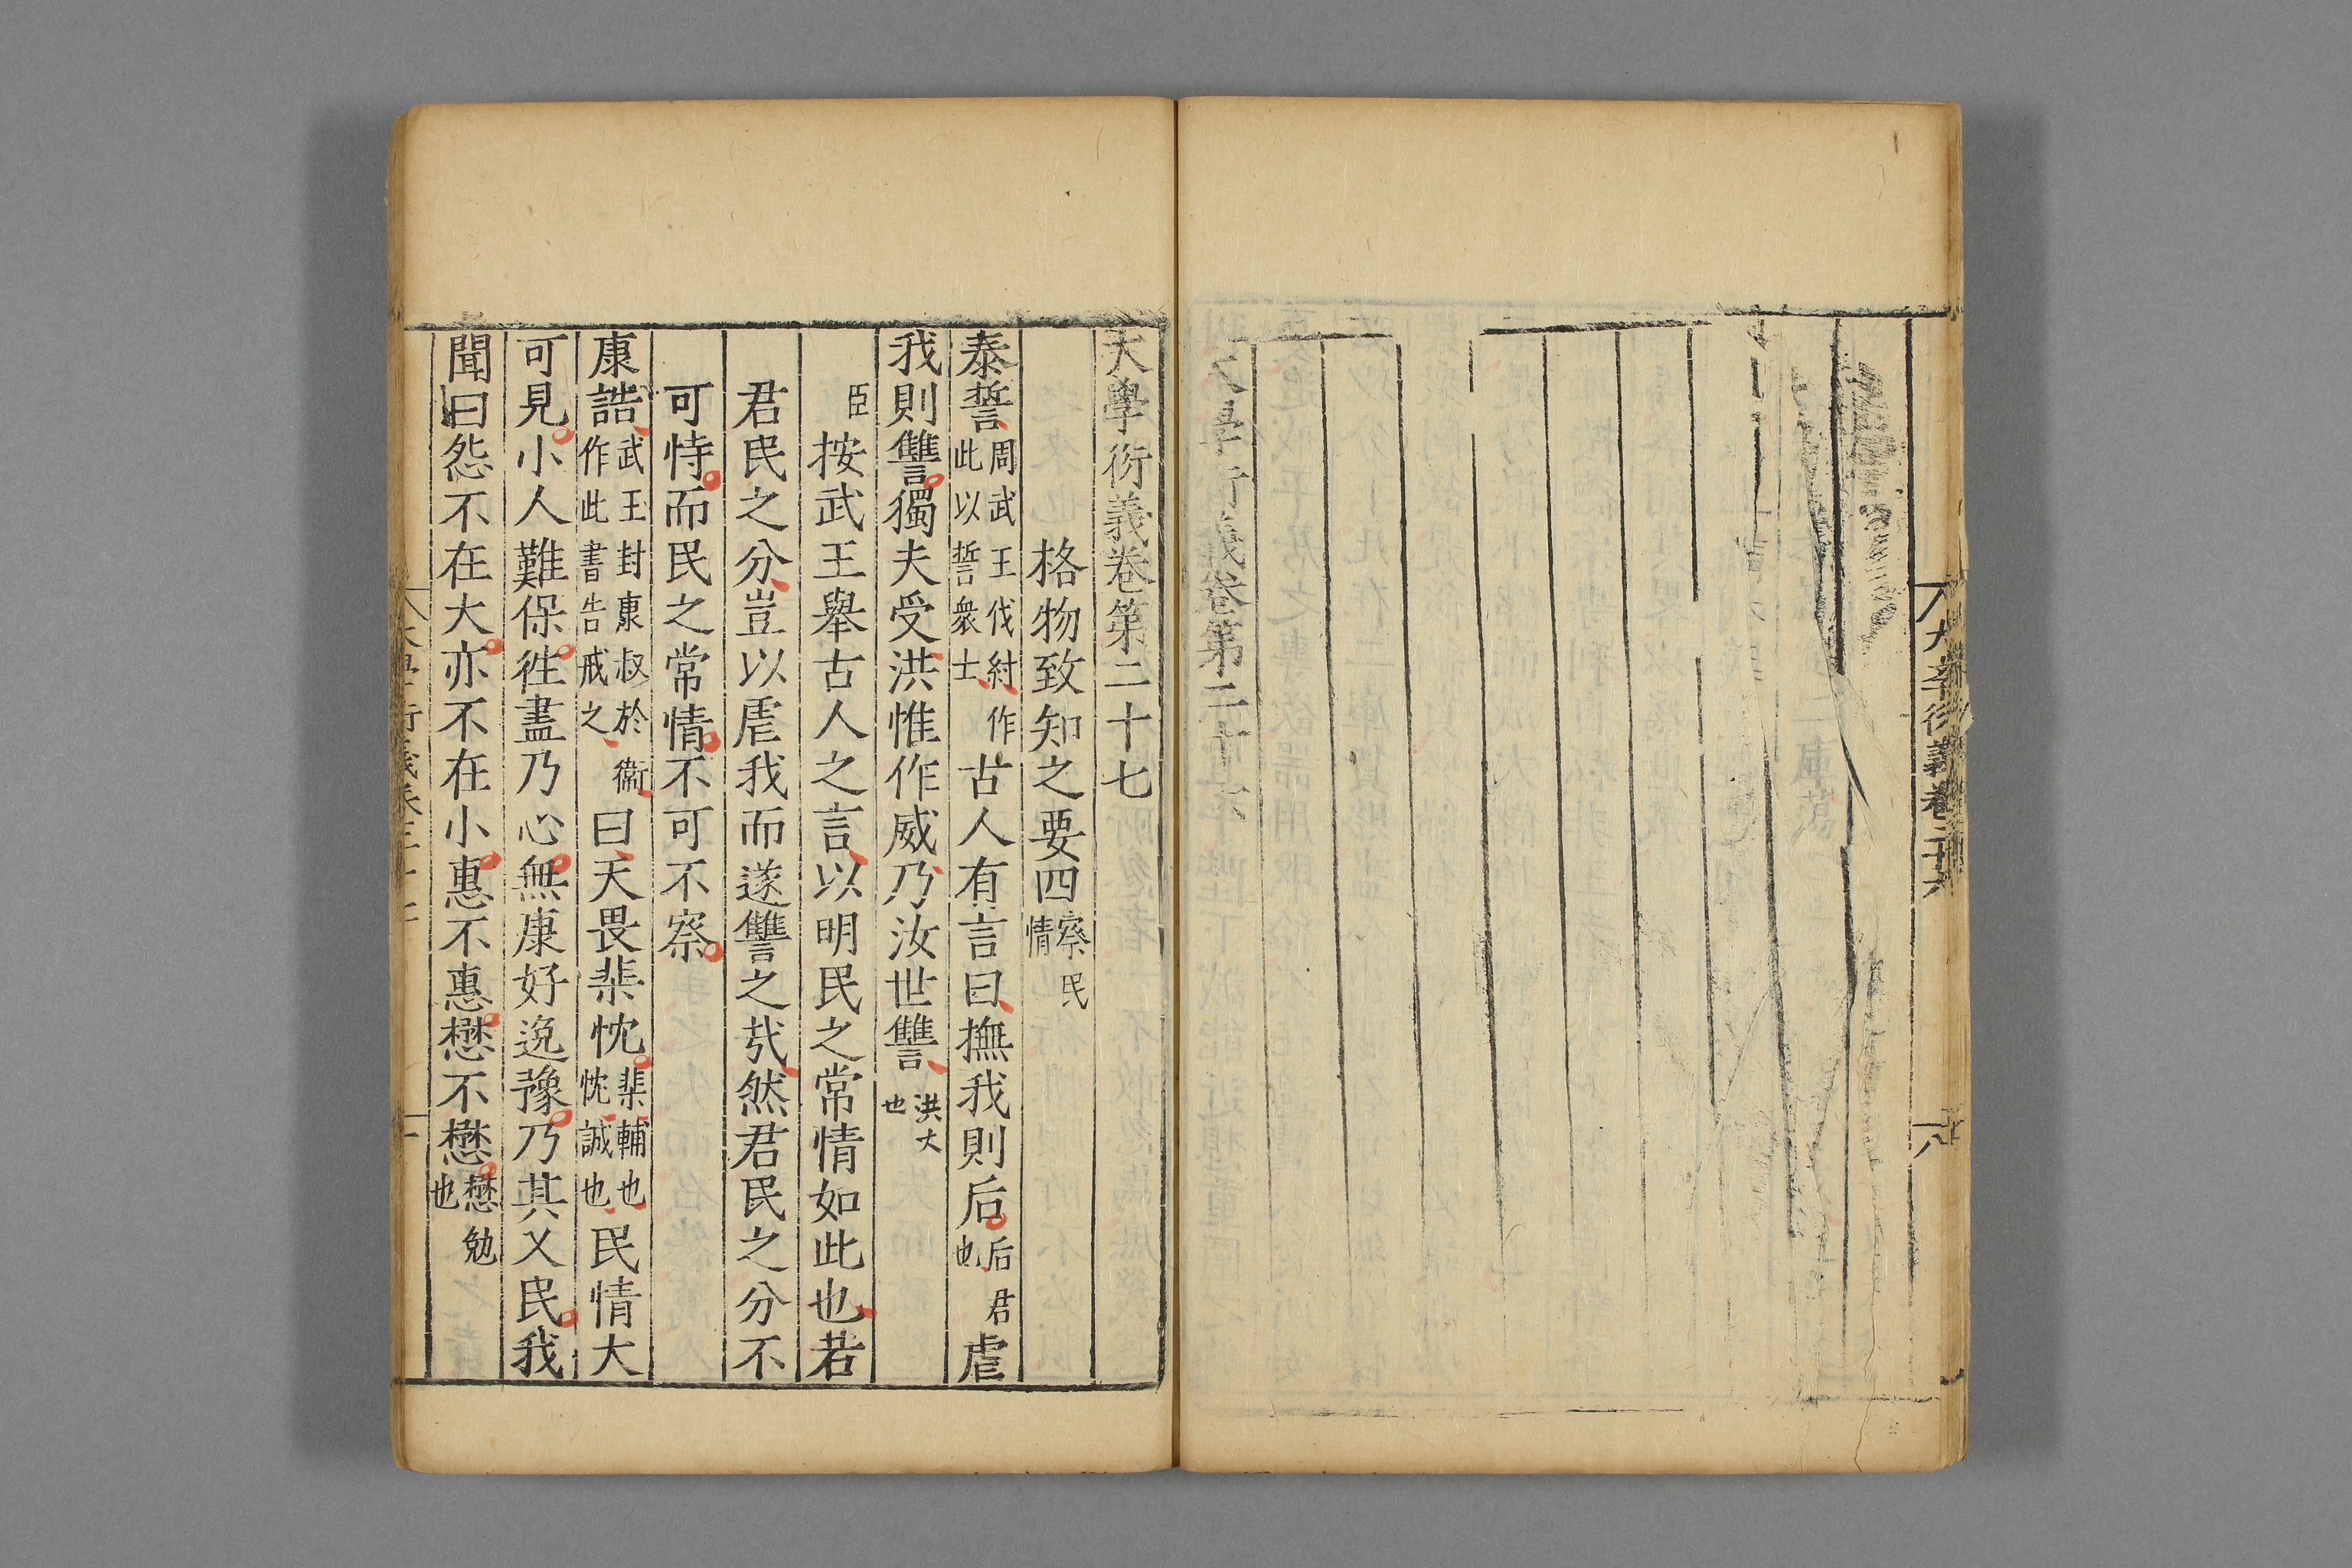 大學衍義卷二十六
六
大學衍義卷第二十六
大學衍義卷第二十七
格物致知之要四察民情
泰誓周武王伐紂作此以誓衆士古人有言曰撫我則后后君也虐
我則讐獨夫受洪惟作威乃汝世讐洪大也
臣按武王舉古人之言以明民之常情如此也若
君民之分豈以虐我而遂讐之㢤然君民之分不
可恃而民之常情不可不察
康誥武王封康叔於衞作此書告戒之曰天畏棐忱棐輔也忱誠也民情大
可見小人難保徃盡乃心無康好逸豫乃其乂民我
聞曰怨不在大亦不在小惠不惠懋不懋懋勉也
大學衍義卷二十七
一